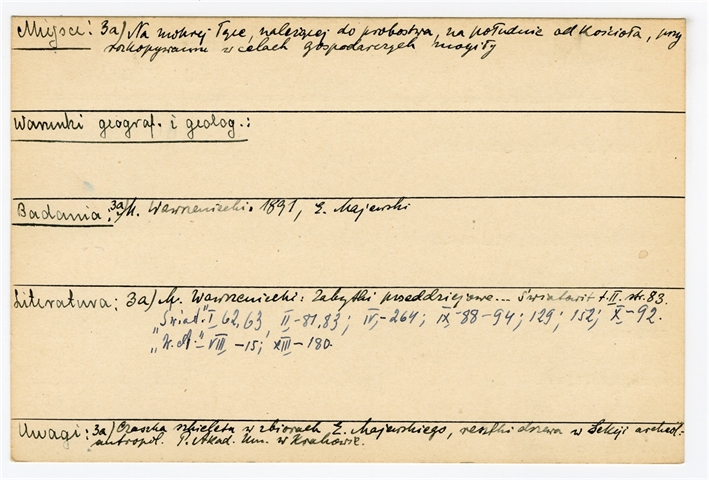 Miejsce: 3a) Na mokrej łące, należącej do probostwa, na południe od kościoła, przy
rozkopywaniu w celach gospodarczych mogiły
Warunki geograf. i geolog.:
Badania: 3a) M. Wawrzeniecki. 1891, E. Majewski
Literatura: 3a) M. Wawrzeniecki: Zabytki przeddziejowe... Światowit t. II. str. 83.
"Świat." I 62, 63, II - 81, 83; IV, - 264; IX - 88 - 94; 129; 152; X - 92.
"W. A." - VIII - 15; XIII - 180.
Uwagi: 3a) Czaszka szkieleta w zbiorach E. Majewskiego, resztki drzewa w Sekcji archeol.-
antropol. P. Akad. Um. w Krakowie.